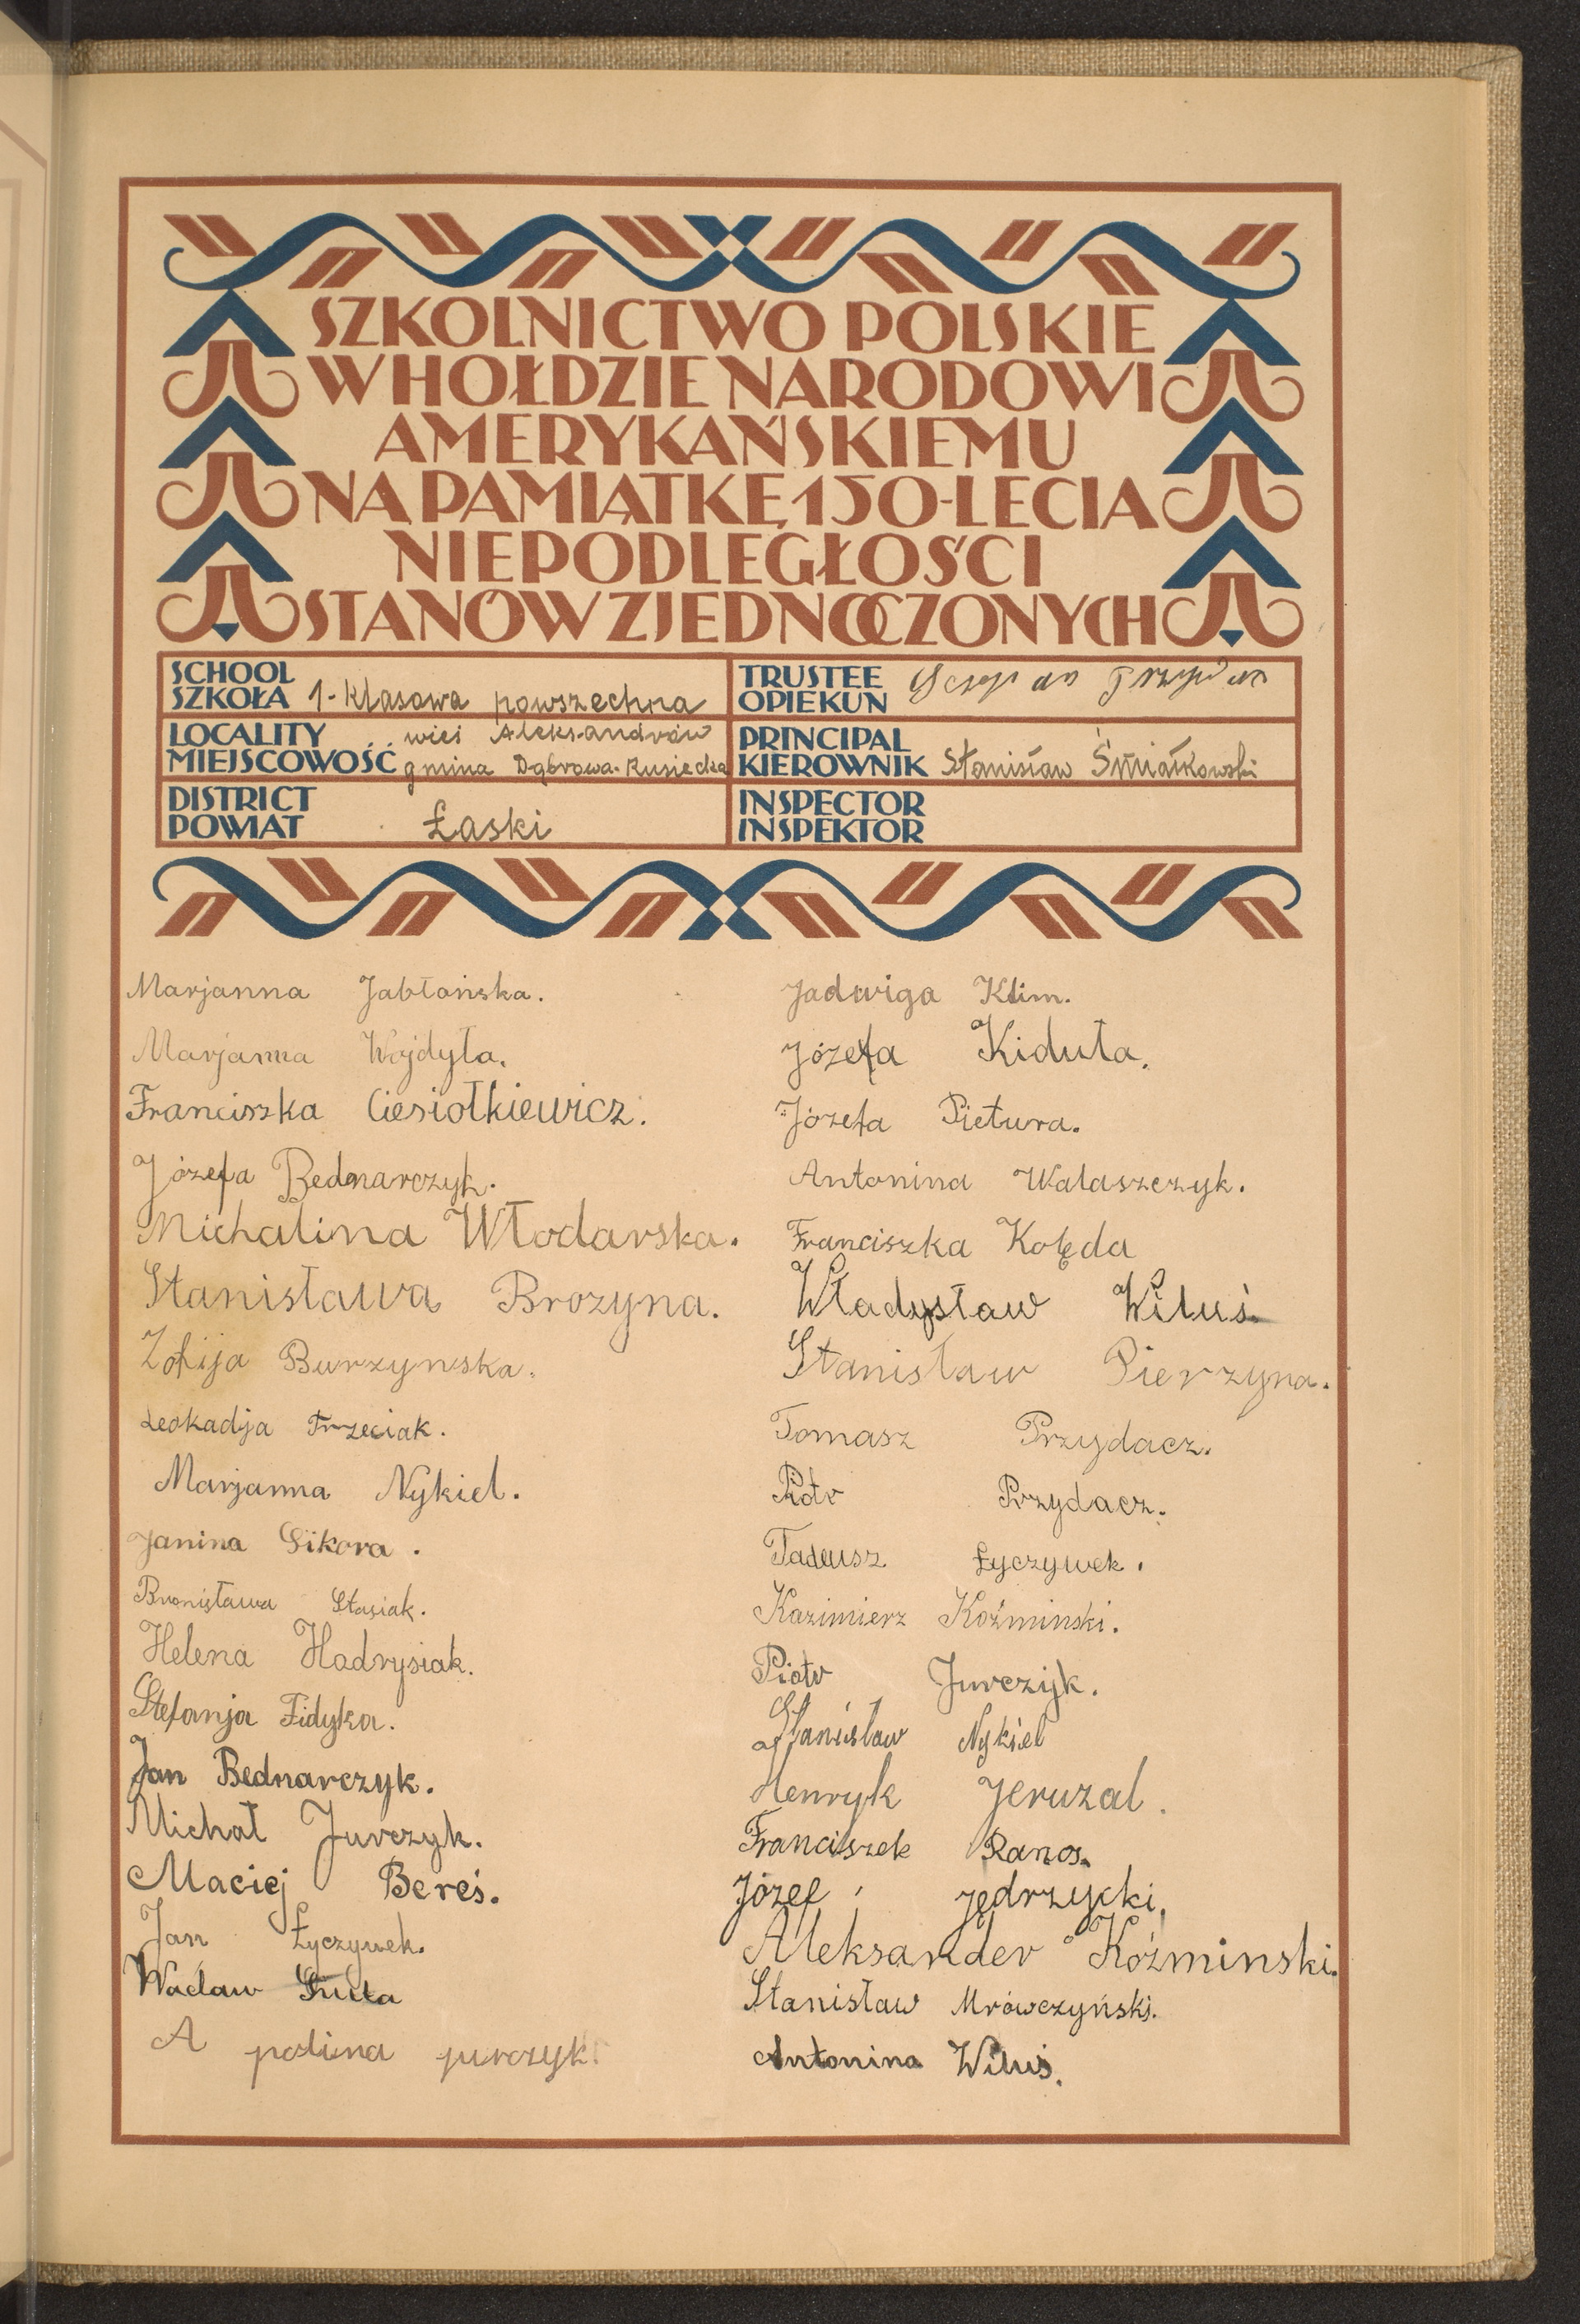 SZKOLNICTWO POLSKIE
W HOŁDZIE NARODOWI
AMERYKAŃSKIEMU
NA PAMIĄTKĘ 150-LECIA
NIEPODLEGŁOŚCI
STANÓW ZJEDNOCZONYCH
SCHOOL
SZKOŁA 1-klasowa powszechna
LOCALITY
MIEJSCOWOŚĆ wieś Aleksandrów
gmina Dąbrowa-Rusiecka
DISTRICT
POWIAT Łaski
TRUSTEE
OPIEKUN
PRINCIPAL
KIEROWNIK Stanisław Śmiałkowski
INSPECTOR
INSPEKTOR
Marjanna Jabłońska.
Marjanna Wojdyła.
Franciszka Ciesiołkiewicz.
Józefa Bednarczyk.
Michalina Włodarska.
Stanisława Brozyna.
Zofija Burzynska.
Leokadja Trzeciak.
Marjanna Nykiel.
Janina Sikora.
Bronisława Stasiak.
Helena Hadrysiak.
Stefanja Fidyka.
Jan Bednarczyk.
Michał Jurczyk.
Maciej Bereś.
Jan Łyczywek.
Wacław
A polina jurczyk.
Jadwiga Klim.
Józefa Kiduła.
Józefa Pietura.
Antonina Walaszczyk.
Franciszka Kolęda
Władysław Wiluś.
Stanisław Pierzyna.
Tomasz Przydacz.
Piotr Przydacz.
Tadeusz Łyczywek.
Kazimierz Koźminski.
Piotr Jurczyk.
Stanisław Nykiel
Henryk Jeruzal.
Franciszek Ranos.
Józef Jędrzycki.
Aleksander Koźminski.
Stanisław Mrówczyński.
Antonina Wiluś.